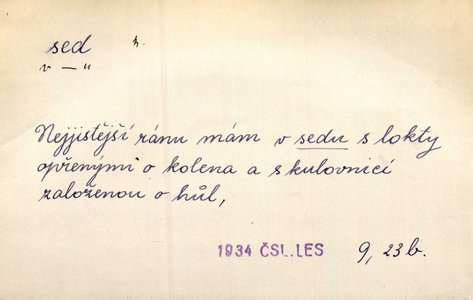 sed h.
v — u
Nejjistější ránu mám v sedu s lokty
opřenými o kolena a s kulovnicí
založenou o hůl,
1934 ČSL.LES 9, 23b.